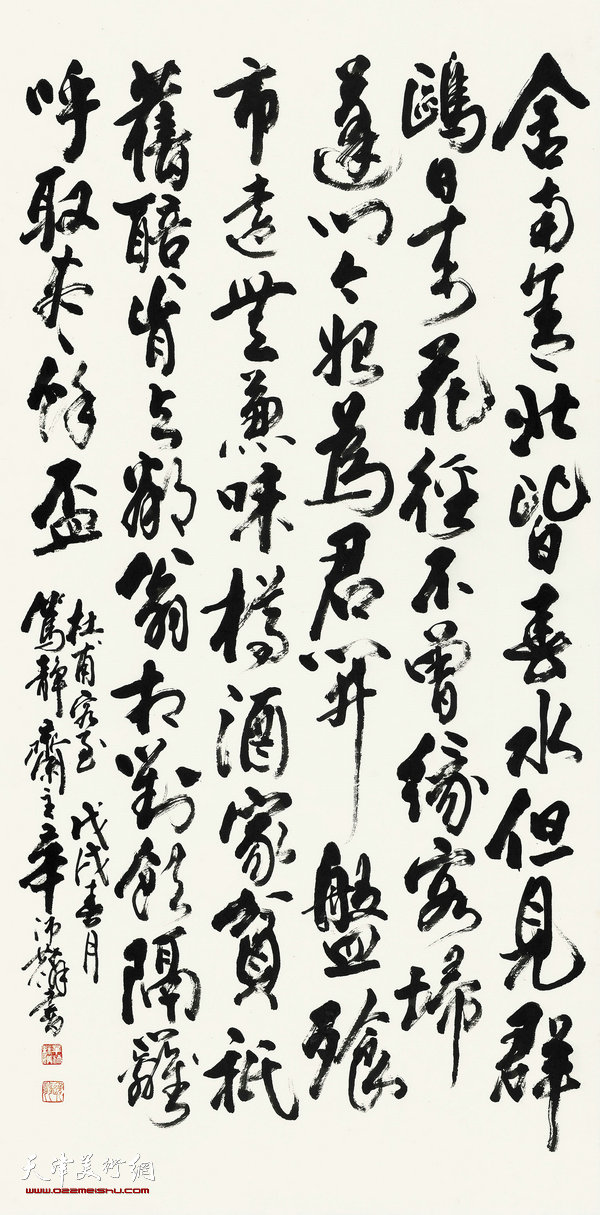 舍南舍北皆春水但見群
鷗日日来花徑不曾緣客掃
蓬門今始為君開盤飱
市遠無兼味樽酒家貧祇
舊醅肯與鄰翁相對飲隔籬
呼取盡餘盃
杜甫客至 戊戌春月
篤靜齋主辛書
天津美術網
www.022meishu.com